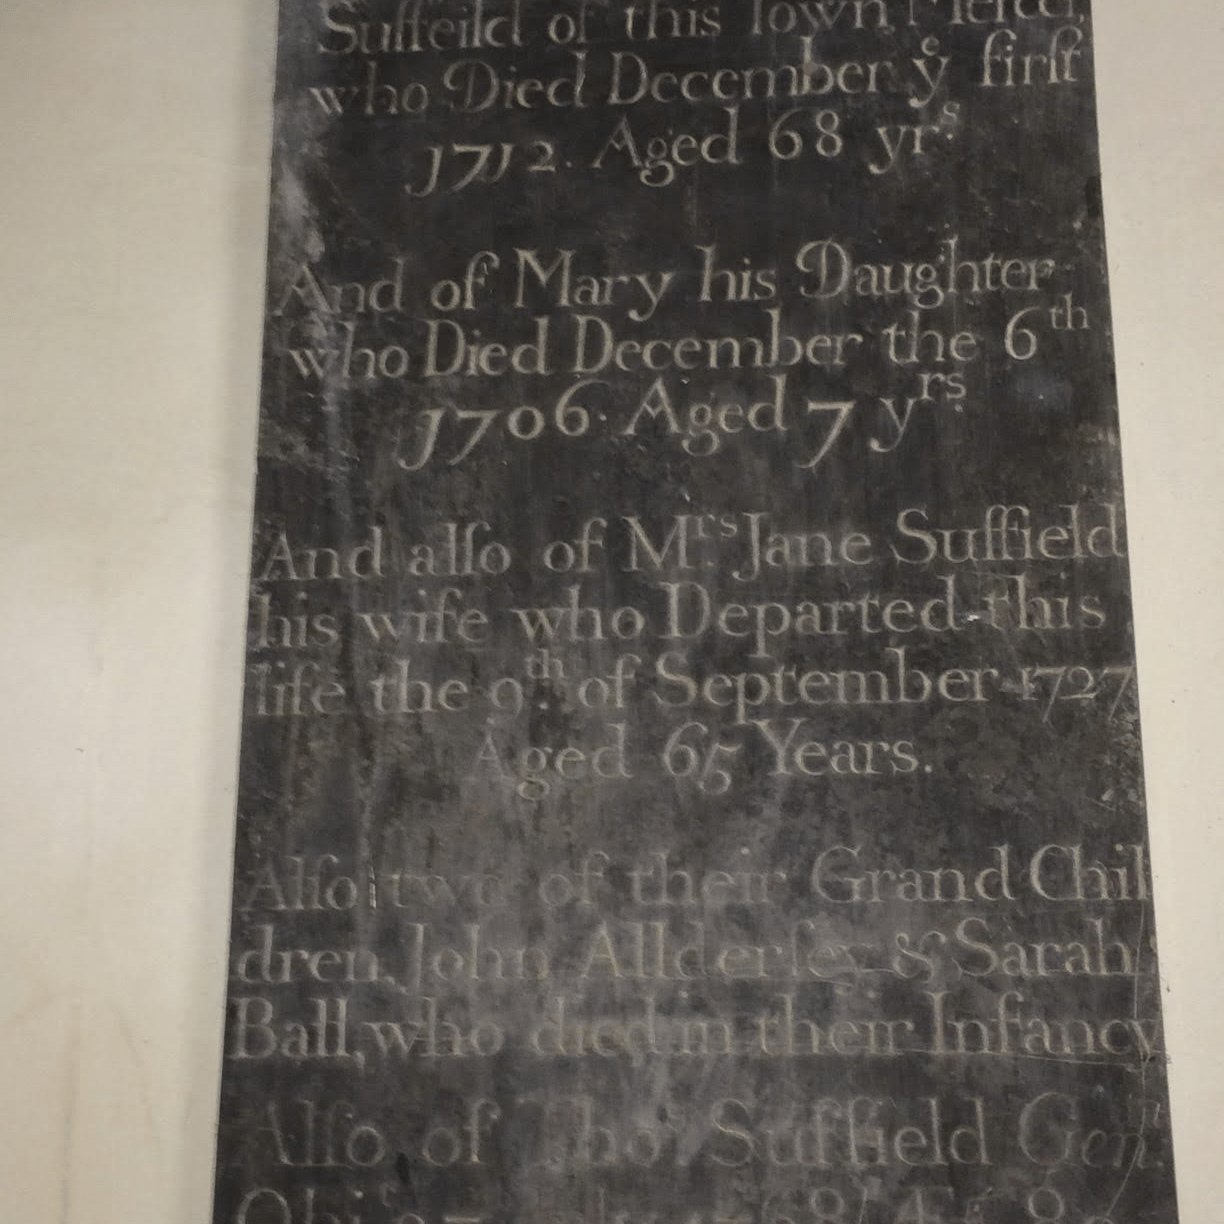 Suffeild of this Town Mercer,
who Died December yͤ firſt
1712. Aged 68 yrˢ.
And of Mary his Daughter
who Died December the 6ᵗʰ
1706. Aged 7 yʳˢ
And alſo of Mʳˢ. Jane Suffield
his wife who Departed this
life the 9ᵗʰ. of September 1727
Aged 65 Years.
Alſo two of their Grand Chil
dren, John Allderſey & Sarah
Ball, who died in their Infancy
Alſo of Thoˢ. Suffield Genᵗ.